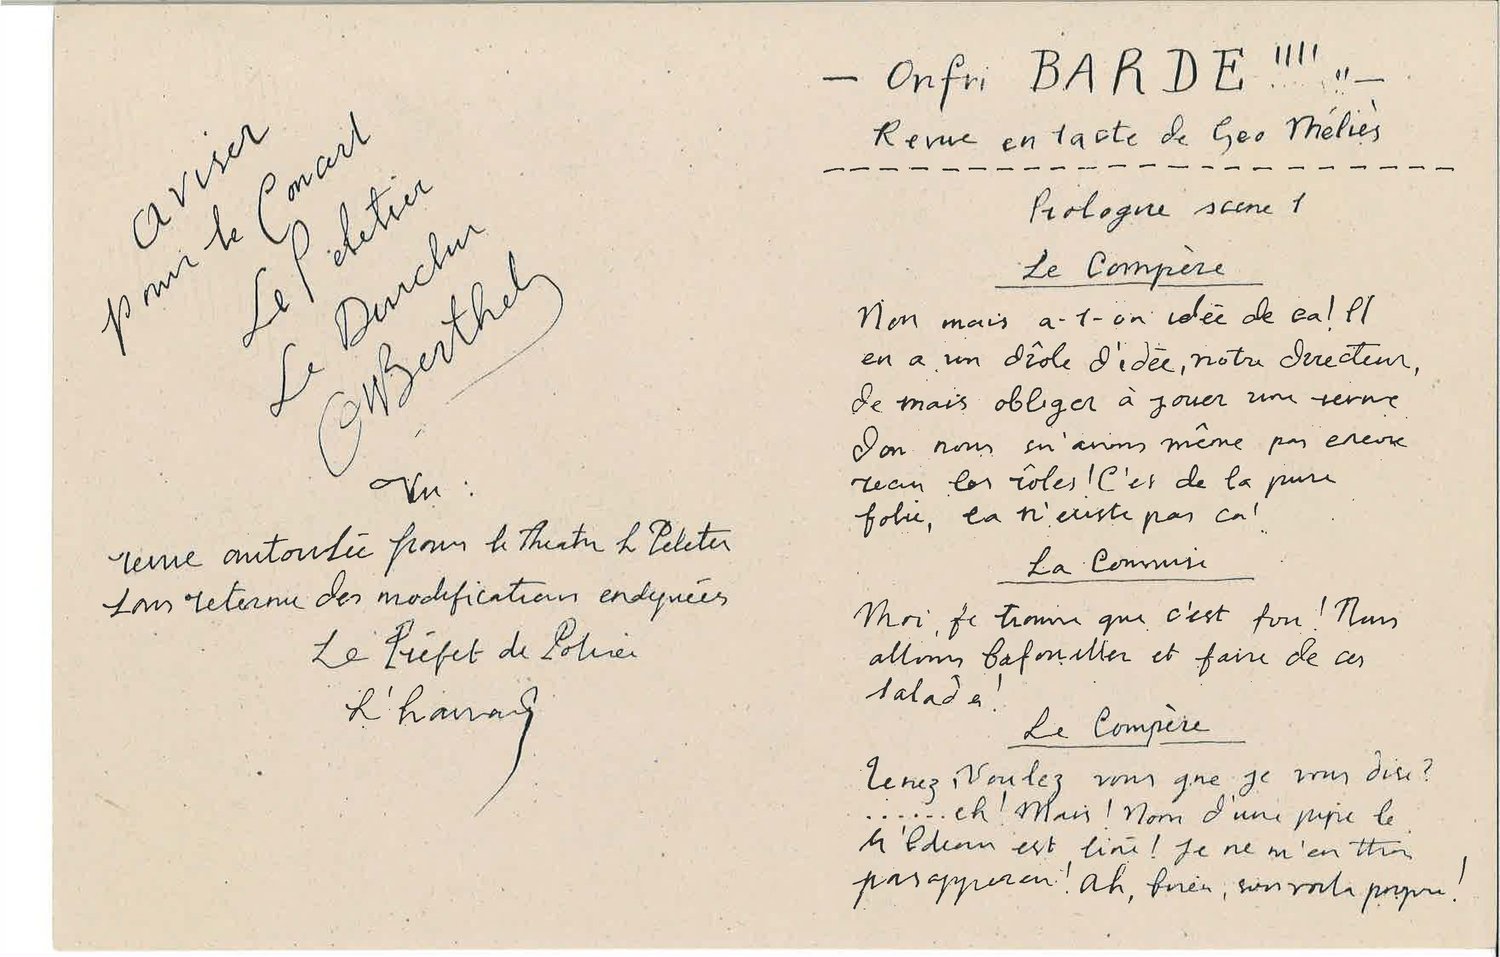 aviser
pour le Conart
Le Peletier
Le Durchur
Berthel
Vu :
revue autorisée pour le theatre L Peletier
sous retenue des modifications endiquées
Le Préfet de Police
— Onfri BARDE !!!! „—
Revue en 1 acte de Geo Méliès
Prologue scene 1
Le Compère
Non mais a-t-on idée de ca! Il
en a un drôle d'idée, notre directeur,
de mais obliger à jouer une revue
don nous n'avons même pas encore
recu les rôles! C'es de la pure
folie, ca n'existe pas ca!
La Commise
Moi, je trouve que c'est fou! Nous
allons bafouiller et faire de ces
salades!
Le Compère
Tenez, Voulez vous que je vous dise?
......eh! Mais! Nom d'une pipe le
rideau est tiré! Je ne m'en étais
pas apperçu! Ah, bien, nous voila propre!